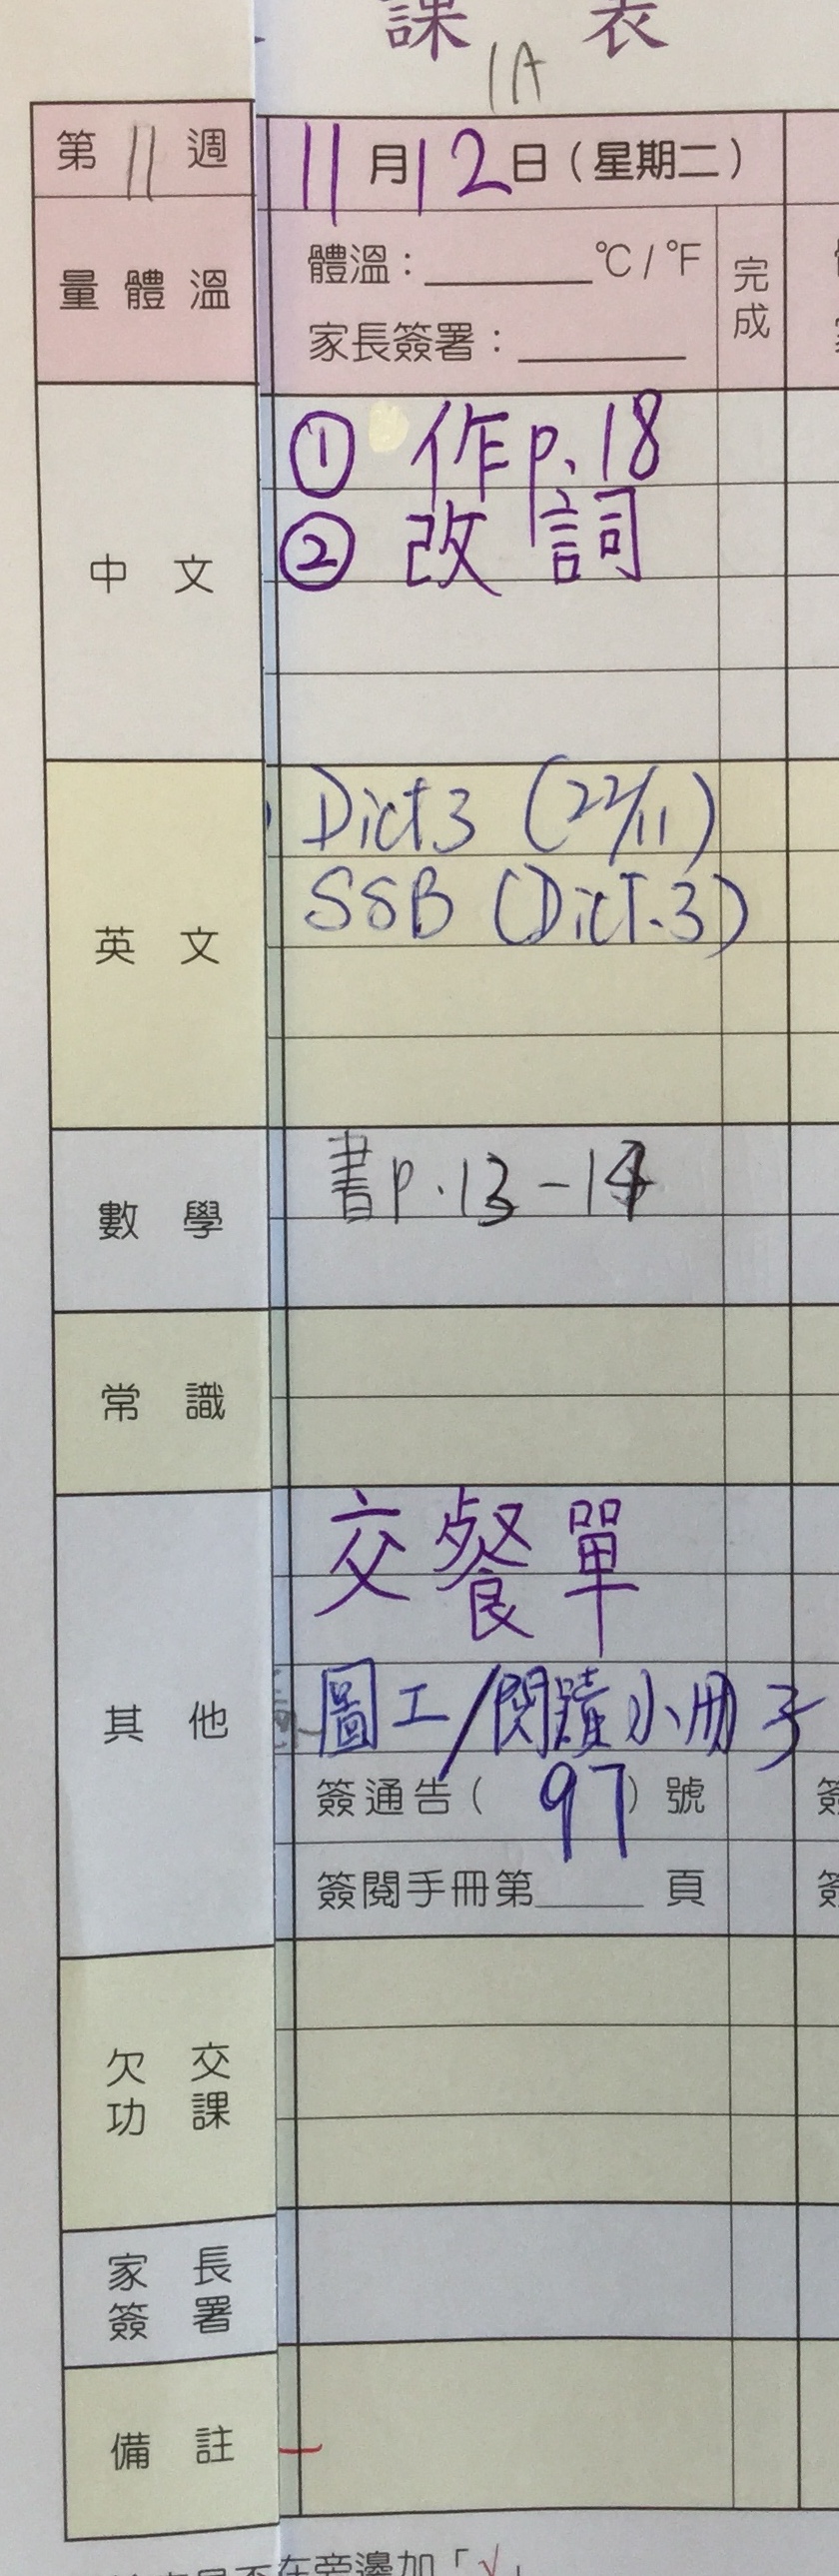 課 表
1A
第 11 週
11月12日（星期二）
量體溫
體溫：______℃/℉
家長簽署：______
完成
中文
① 作p.18
② 改詞
英文
Dict3 (22/11)
SSB (Dict.3)
數學
書p.13-14
常識
其他
交餐單
圖工/閱讀小冊子
簽通告（ 97 ）號
簽閱手冊第____ 頁
欠交功課
家長簽署
備註
在旁邊加「√」